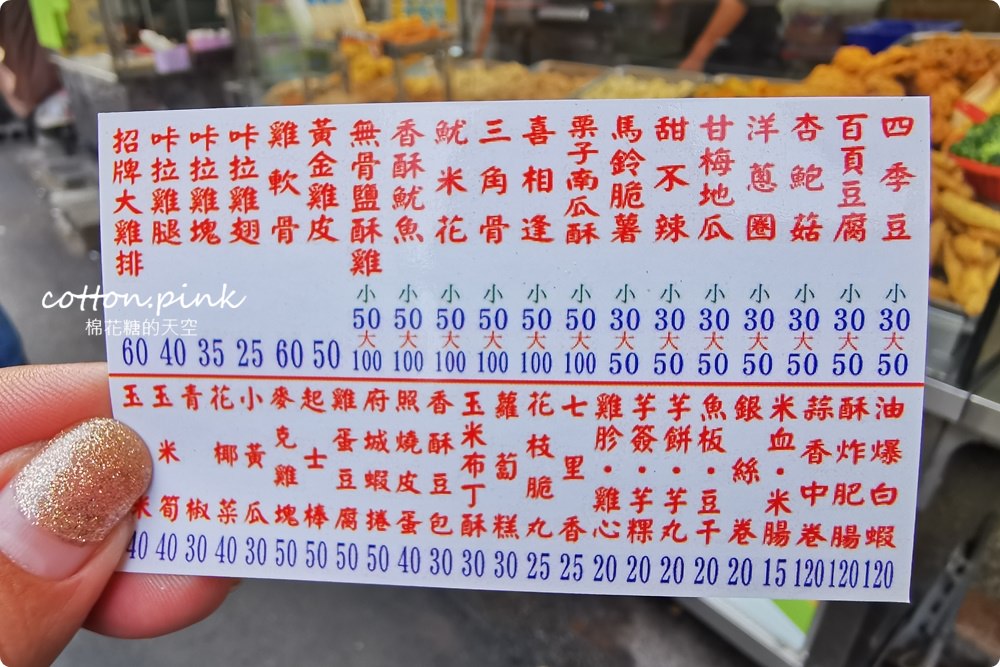 招牌大雞排 60
咔拉雞腿 40
咔拉雞塊 35
咔拉雞翅 25
雞軟骨 60
黃金雞皮 50
無骨鹽酥雞 小50 大100
香酥魷魚 小50 大100
魷米花 小50 大100
三角骨 小50 大100
喜相逢 小50 大100
栗子南瓜酥 小50 大100
馬鈴脆薯 小30 大50
甜不辣 小30 大50
甘梅地瓜 小30 大50
洋蔥圈 小30 大50
杏鮑菇 小30 大50
百頁豆腐 小30 大50
四季豆 小30 大50
玉米 40
玉米筍 40
青椒 30
花椰菜 40
小黃瓜 30
麥克雞塊 50
起士棒 50
雞蛋豆腐 50
府城蝦捲 50
照燒皮蛋 40
香酥豆包 30
玉米布丁酥 30
蘿蔔糕 30
花枝脆丸 25
七里香 25
雞胗·雞心 20
芋簽·芋粿 20
芋餅·芋丸 20
魚板·豆干 20
銀絲卷 20
米血·米腸 15
蒜香中卷 120
酥炸肥腸 120
油爆白蝦 120
cotton.pink
棉花糖的天空